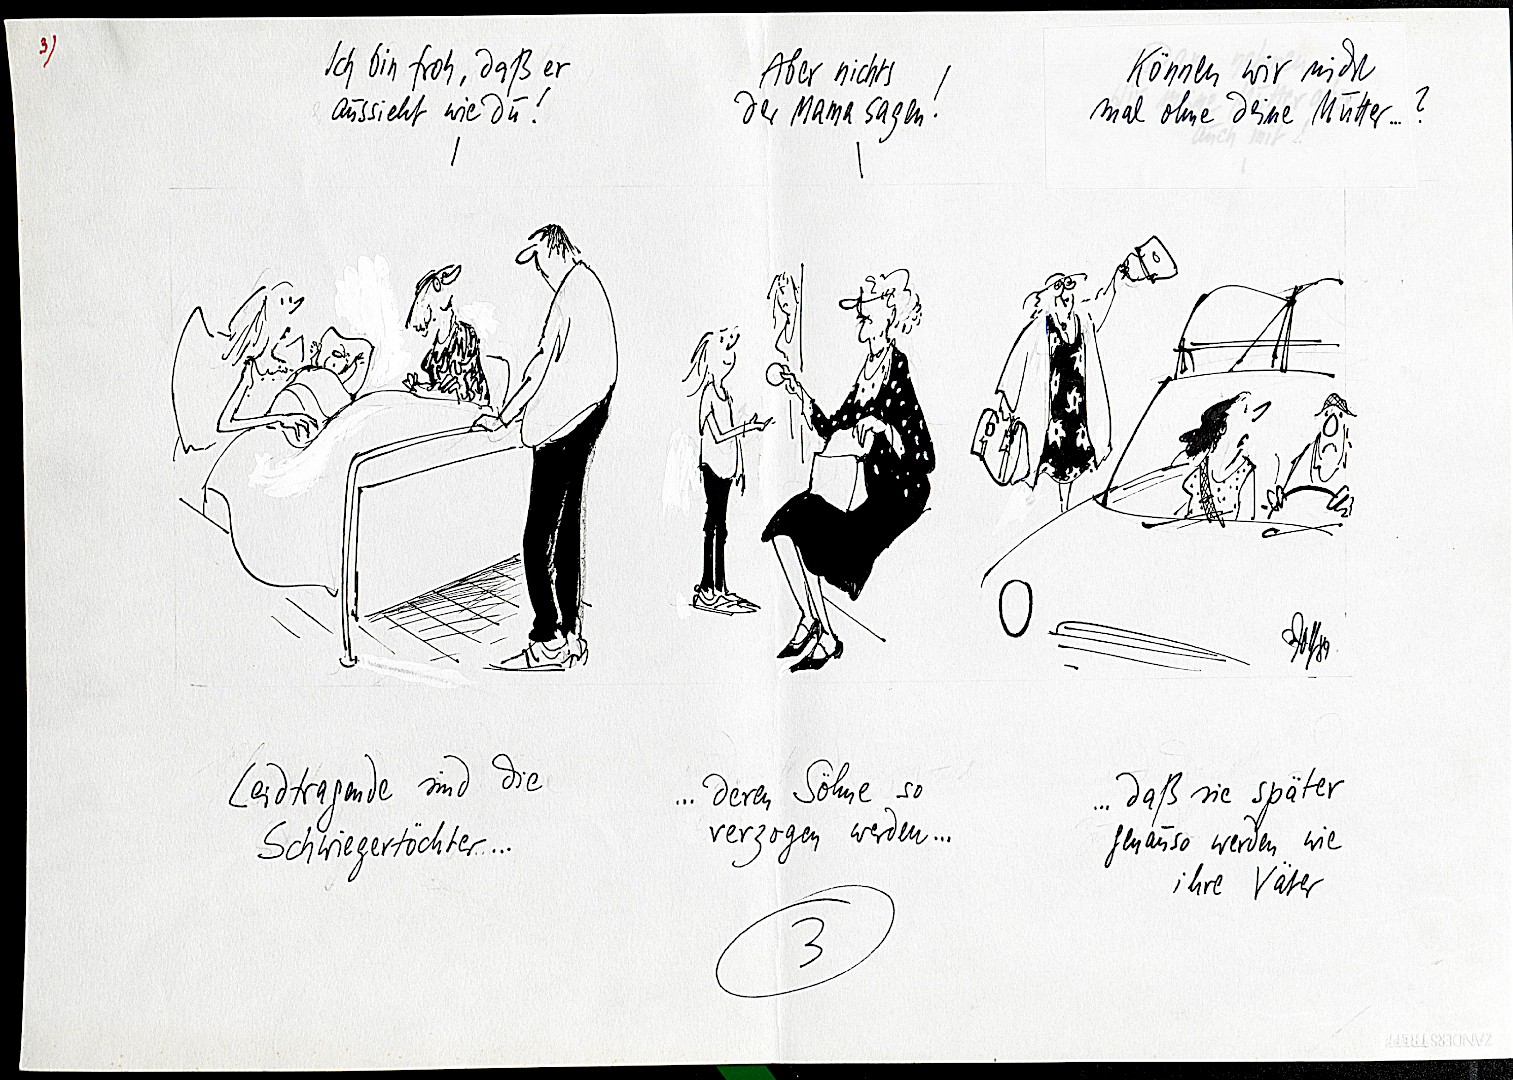 3)
Ich bin froh, daß er
aussieht wie du!
Aber nichts
der Mama sagen!
Können wir nicht
mal ohne deine Mutter...?
auch mit!
Leidtragende sind die
Schwiegertöchter...
... deren Söhne so
verzogen werden...
... daß sie später
genauso werden wie
ihre Väter
3
ZANDERS